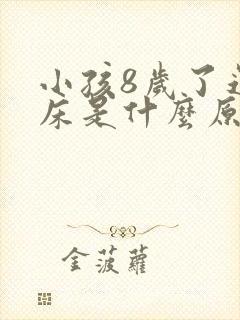 小孩8歲了
床是什麼原
金菠蘿